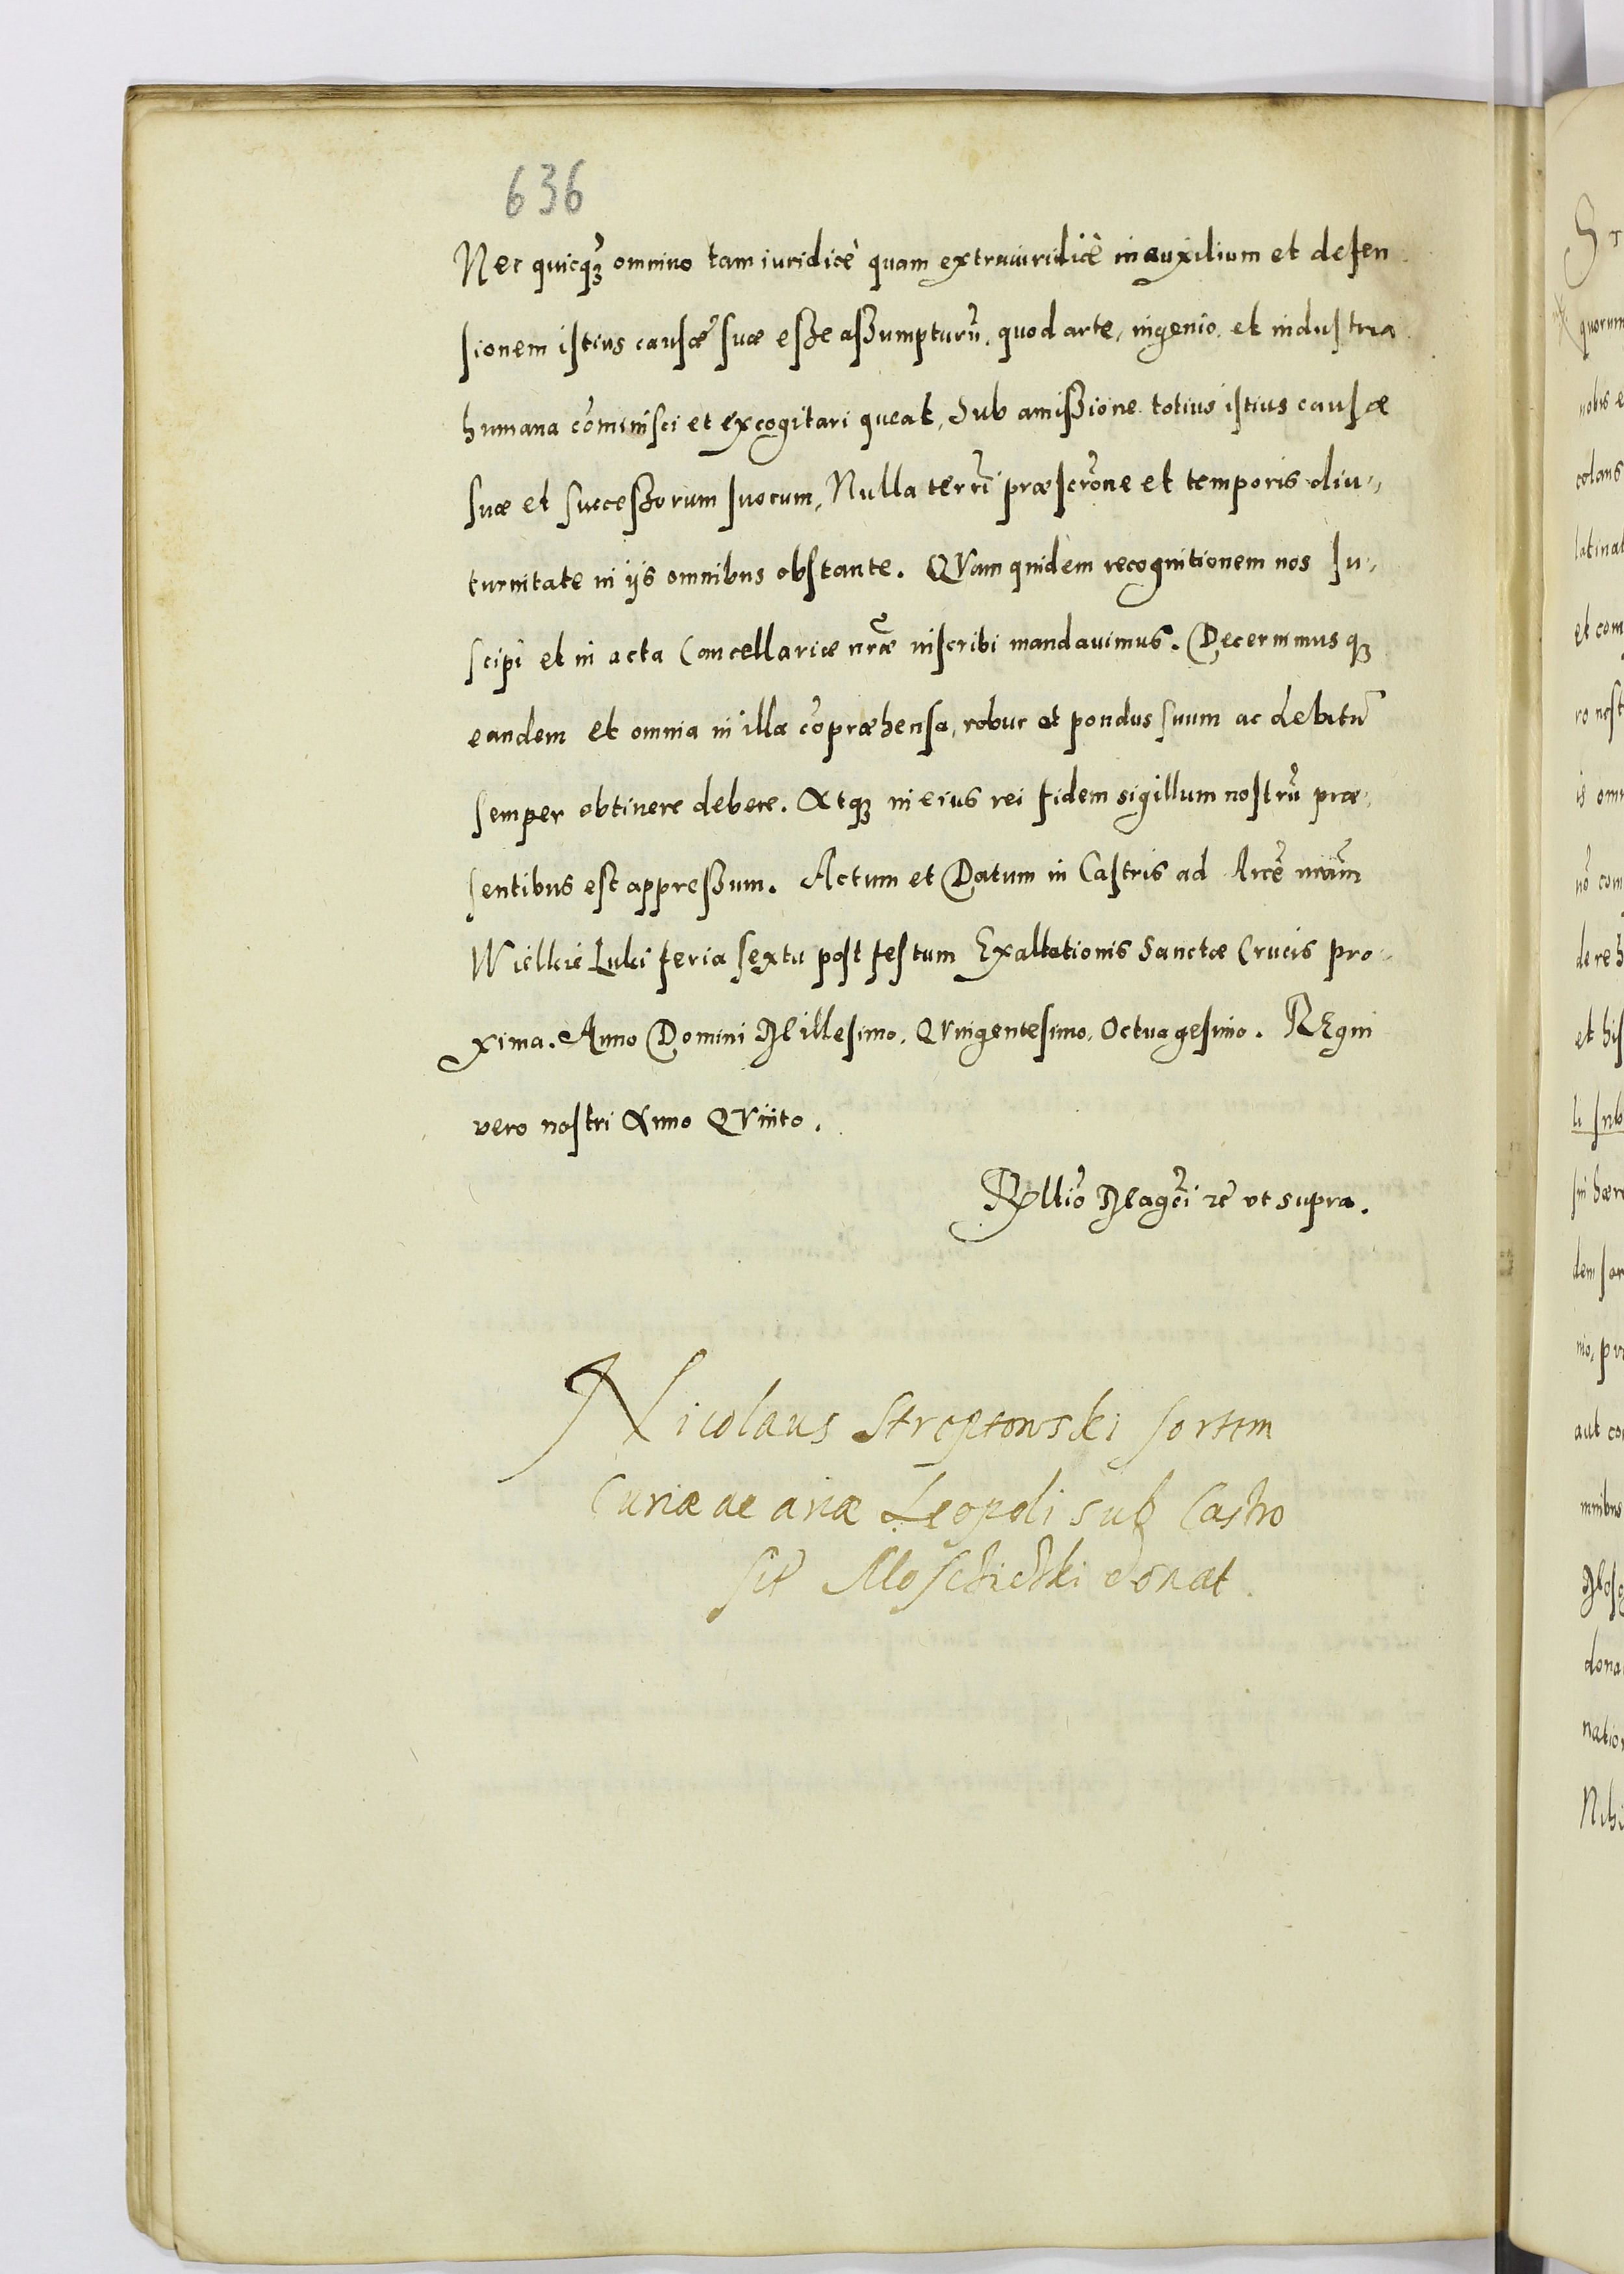 636
Nec quicqʒ omnino tam iuridicè quam extraiuridicè in auxilium et defen
sionem istius causæ suæ eße aßumpturũ, quod arte, ingenio, et industria
humana cõminisci et excogitari queat, Sub amißione totius istius causæ
suæ et succeßorum suorum, Nulla terrĩ præscrõne et temporis diu„
turnitate in ijs omnibus obstante. QVam quidem recognitionem nos su„
scipi et in acta Cancellariæ nr̃æ inscribi mandauimus. Decernimusqʒ
eandem et omnia in illa cõpræhensa, robur et pondus suum ac debitũ
semper obtinere debere. Atqʒ in eius rei fidem sigillum nostrũ præ„
sentibus est appreßum. Actum et Datum in Castris ad Arcẽ nr̃am
Wielkie Luki feria sexta post festum Exaltationis Sanctæ Crucis pro„
xima. Anno Domini Millesimo, QVingentesimo, Octuagesimo. REgni
vero nostri Anno QVinto.
Rllio Magci ꝛc̃ vt supra.
Nicolaus Streptowski sortem
Curiæ ac areæ Leopoli sub Castro
donat
St
quorum
nobis e
colans
latinat
et com
ro nost
is omn
nõ com
de re h
et his
li sub
sin hære
dem sar
nio, pr
aut co
mnibus
Mosc
dona
nation
Nihi